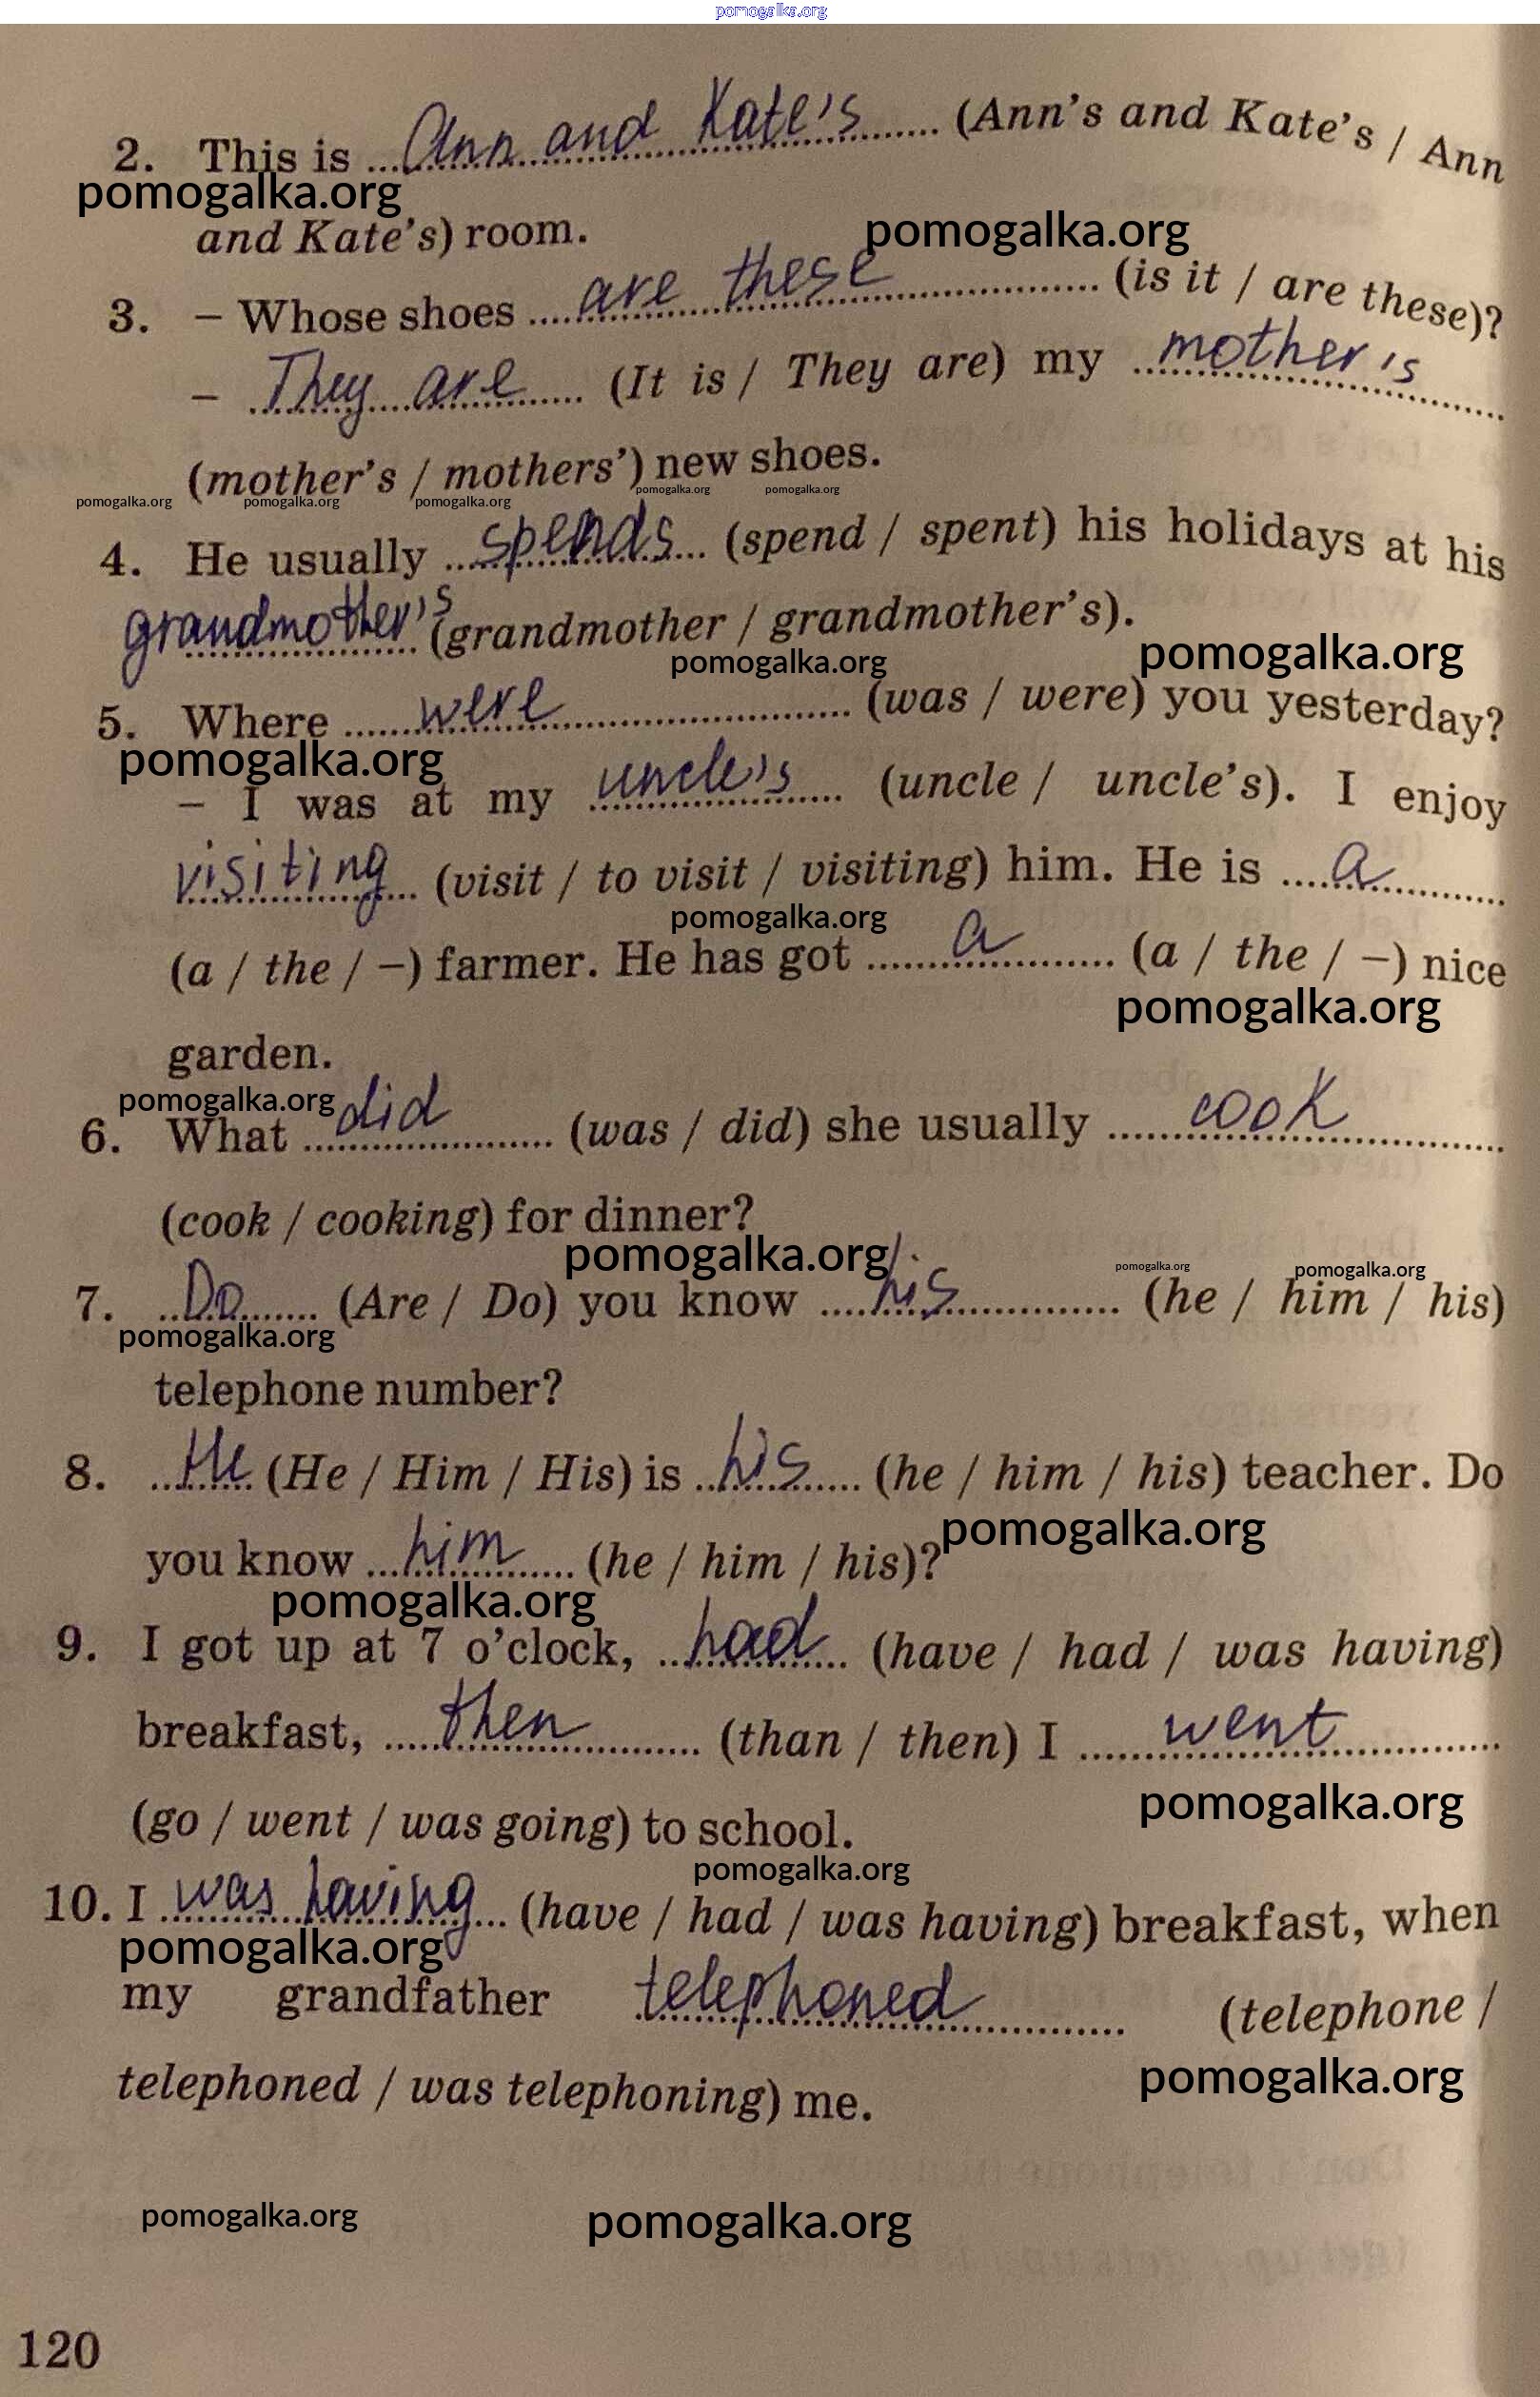 pomogalka.org
2. This is ...Ann and Kate's....... (Ann's and Kate's / Ann
pomogalka.org
and Kate's) room.
pomogalka.org
3. – Whose shoes ....are these.............. (is it / are these)?
– ..They are.... (It is / They are) my ..mother's......
(mother's / mothers') new shoes.
pomogalka.org pomogalka.org pomogalka.org pomogalka.org pomogalka.org
4. He usually ...spends... (spend / spent) his holidays at his
grandmother's (grandmother / grandmother's).
pomogalka.org pomogalka.org
5. Where .....were................... (was / were) you yesterday?
pomogalka.org
– I was at my uncle's.... (uncle / uncle's). I enjoy
visiting... (visit / to visit / visiting) him. He is ....a.........
pomogalka.org
(a / the / –) farmer. He has got ......a....... (a / the / –) nice
pomogalka.org
garden.
pomogalka.org
6. What ...did........ (was / did) she usually ......cook..........
(cook / cooking) for dinner?
pomogalka.org
7. ..Do...... (Are / Do) you know ....his............ (he / him / his)
pomogalka.org pomogalka.org
pomogalka.org
telephone number?
8. ...He (He / Him / His) is ..his..... (he / him / his) teacher. Do
pomogalka.org
you know ...him..... (he / him / his)?
pomogalka.org
9. I got up at 7 o'clock, ..had.. (have / had / was having)
breakfast, .....then......... (than / then) I ......went...........
pomogalka.org
(go / went / was going) to school.
pomogalka.org
10. I was having... (have / had / was having) breakfast, when
pomogalka.org
my grandfather telephoned......... (telephone /
pomogalka.org
telephoned / was telephoning) me.
pomogalka.org pomogalka.org
120